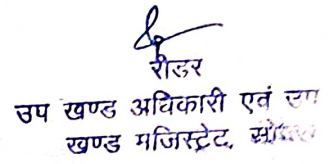 रीडर
उप खण्ड अधिकारी एवं उप
खण्ड मजिस्ट्रेट,